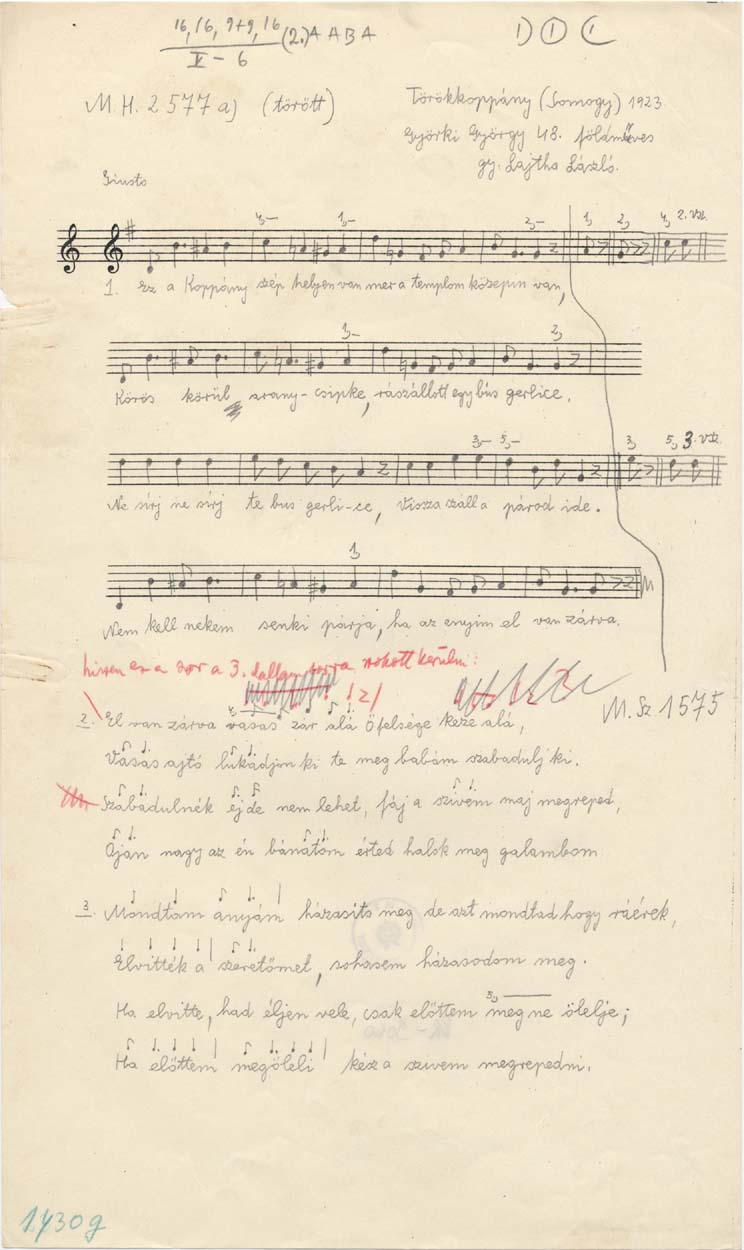 16, 16, 9+9, 16 (2.) A A B A
V – 6
M. H. 2577 a) (törött)
Törökkoppány (Somogy) 1923
Györki György 48. földműves
gy. Lajtha László.
Giusto
1. Ez a Koppány szép helyen van mer a templom közepin van,
Körös körül arany-csipke, rászállott egy bús gerlice.
Ne sírj ne sírj te bus gerli-ce, vissza száll a párod ide.
Nem kell nekem senki párja, ha az enyim el van zárva.
hiszen ez a sor a 3. dallamsorra szokott kerülni:
M. Sz. 1575
2. El van zárva vasas zár alá Őfelsége keze alá,
Vasas ajtó lukadjon ki te meg babám szabadulj ki.
Szabadulnék ejde nem lehet, fáj a szivem maj megreped,
Ojan nagy az én bánatom érted halok meg galambom
3. Mondtam anyám házasíts meg de azt mondtad hogy ráérek,
Elvitték a szeretőmet, sohasem házasodom meg.
Ha elvitte, had éljen vele, csak előttem meg ne ölelje;
Ha előttem megöleli kész a szivem megrepedni.
1430g